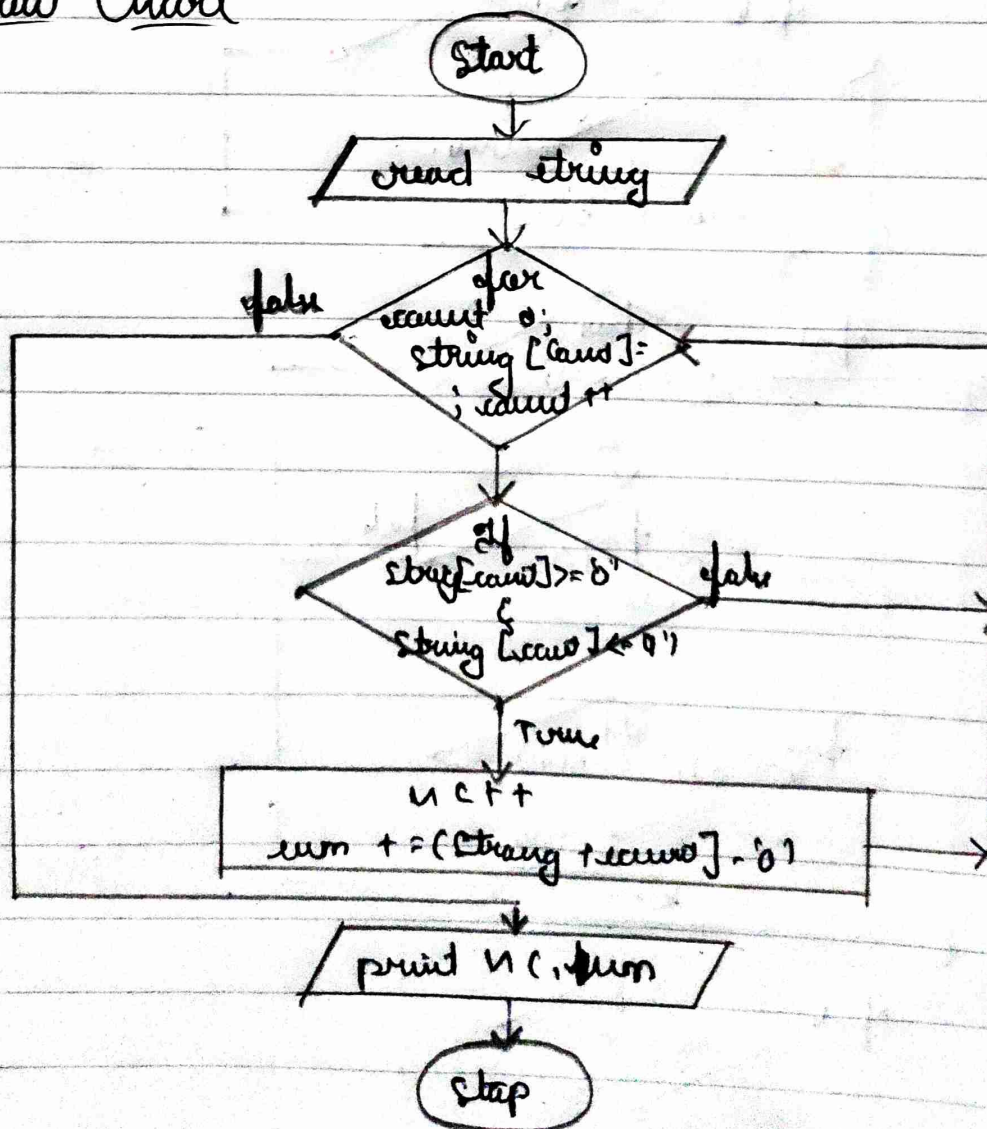 Flow Chart
Start
read string
false
for
count 0;
string [count]=
; count ++
If
string[count]>='0'
&
string [count] <= '9')
false
True
nc++
sum + = (string + count] - '0')
print nc, sum
stop